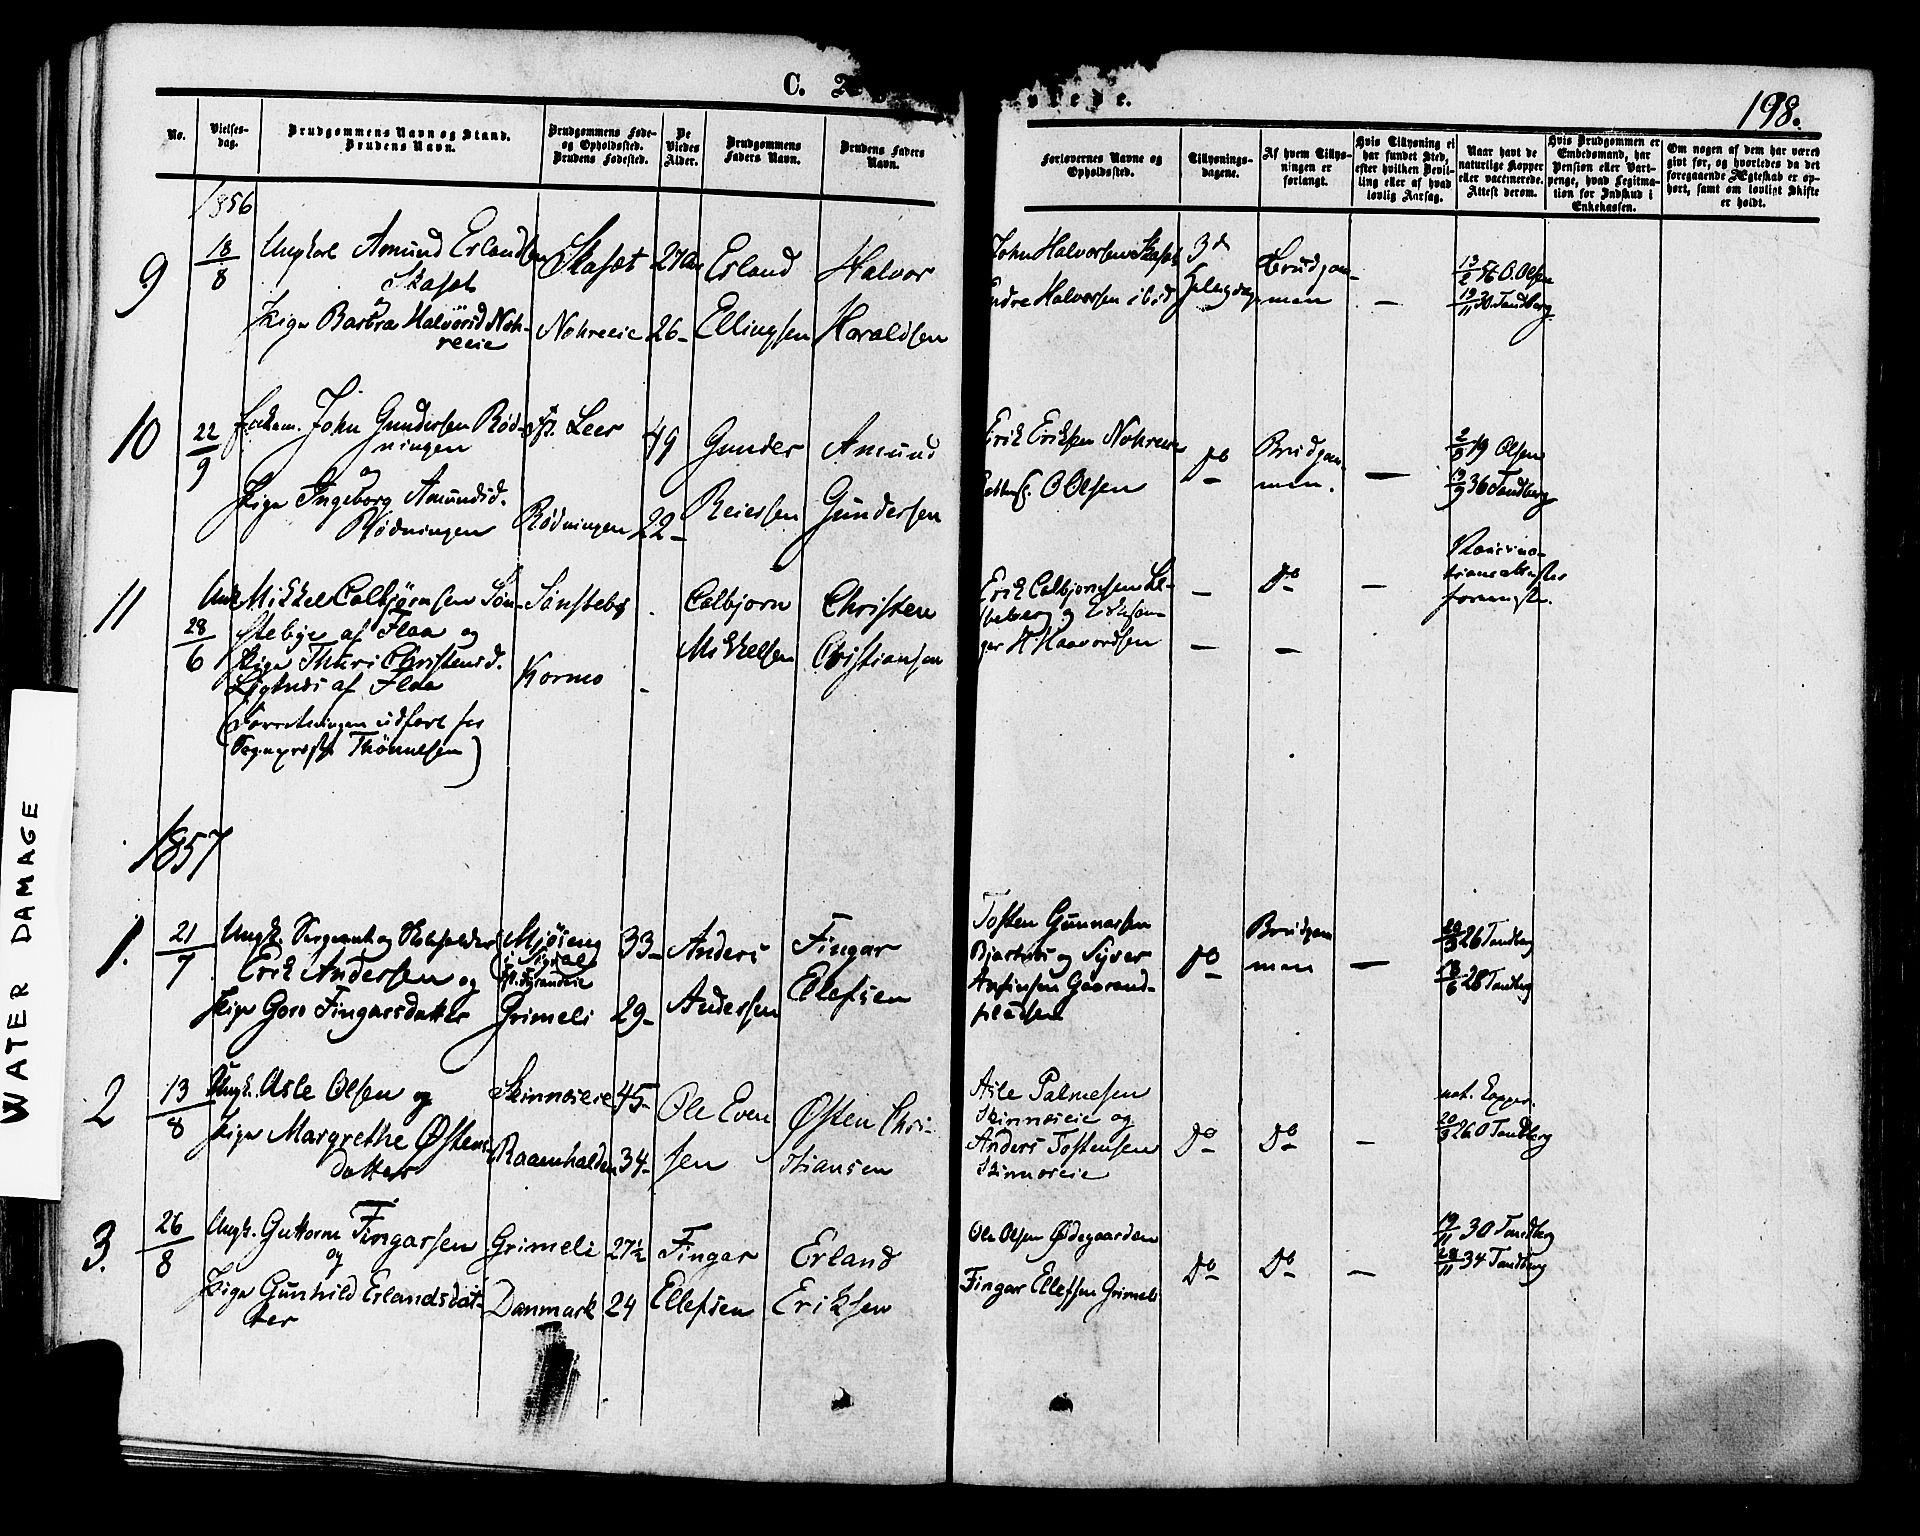 C.
viede.
198.
No.
Vielses-
dag.
Brudgommens Navn og Stand.
Brudens Navn.
Brudgommens Føde-
og Opholdssted.
Brudens Fødested.
De
Viedes
Alder.
Brudgommens
Faders Navn.
Brudens Faders
Navn.
Forlovernes Navne og
Opholdssted.
Tillysnings-
dagene.
Af hvem Tillys-
ningen er
forlangt.
Hvis Tillysning ei
har fundet Sted,
efter hvilken Bevil-
ling eller af hvad
lovlig Aarsag.
Naar havt de
naturlige Kopper
eller vaccinerede.
Attest derom.
Hvis Brudgommen er
Embedsmand, har
Pension eller Vart-
penge, hvad Legitima-
tion for Indskud i
Enkekassen.
Om nogen af dem har været
gift før, og hvorledes da det
foregaaende Ægteskab er op-
hørt, samt om lovligt Skifte
er holdt.
1856
9
18/8
Ungkarl Amund Erlandsen
Skasæt
og
Pige Barbra Halvorsd Noh-
reeie
Skasæt
Nohreeie
26-
Erland
Ellingsen
Halvor
Haraldsen
John Halvorsen Skasæt
Endre Halvorsen ibid
3d
Brudgom-
men
—
13/2 56 O. Olsen
19/11 30 Tandberg
10
22/9
John Gundersen Rød-
ningen
og
Pige Ingeborg Amundsd.
Rødningen
Leer
Rødningen
49
22-
Gunder
Reiersen
Amund
Gundersen
Erik Eriksen Nohreeie
O Olsen
Do
Brudgom-
men.
—
19 Olsen
36 Tandberg
11
28/6
Mikkel Colbjørnsen Søn-
stebye af Flaa og
Pige Thuri Christensd.
af Flaa
(Forretningen udført for
Sognepræst Thønnesen)
Sønsteby
Kormo
-
Colbjørn
Mikkelsen
Christen
Christiansen
Erik Colbjørnsen
og
H. Haavordsen
—
—
Do
—
—
1857
1.
21/7
Ungk. Sergeant og
Erik Andersen og
Pige Goro Fingarsdatter
Mjøieng
i Sigdal
Grimeli
33-
29-
Anders
Andersen
Fingar
Ellefsen
Tosten Gunnarsen
og Syver
Do
Brudgom
men
—
26 Tandberg
28 Tandberg
2
13/8
Ungk. Asle Olsen og
Pige Margrethe Østens
datter
Skinnæseie
Raaenhalden
45-
34-
Ole Even
sen
Østen Chri-
stiansen
Asle Palmesen
Skinnæseie og
Anders Tostensen
Skinnæseie
Do
Do
—
nat. Kopper.
Tandberg
3.
26/8
Ungk. Guttorm Fingarsen
og
Pige Gunhild Erlandsdat-
ter
Grimeli
Danmark
27½
24
Fingar
Ellefsen
Erland
Eriksen
Ole Olsen Ødegaarden
Fingar Ellefsen Grimeli
Do
Do
—
19/11 30 Tandberg
34 Tandberg
WATER DAMAGE